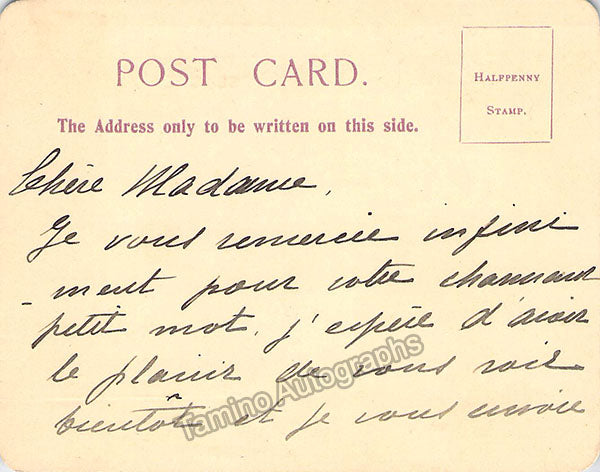 POST CARD.
HALFPENNY
STAMP.
The Address only to be written on this side.
Chère Madame,
Je vous remercie infini
-ment pour votre charmant
petit mot. j'espère d'avoir
le plaisir de vous voir
bientôt et je vous envoie
Tamino Autographs